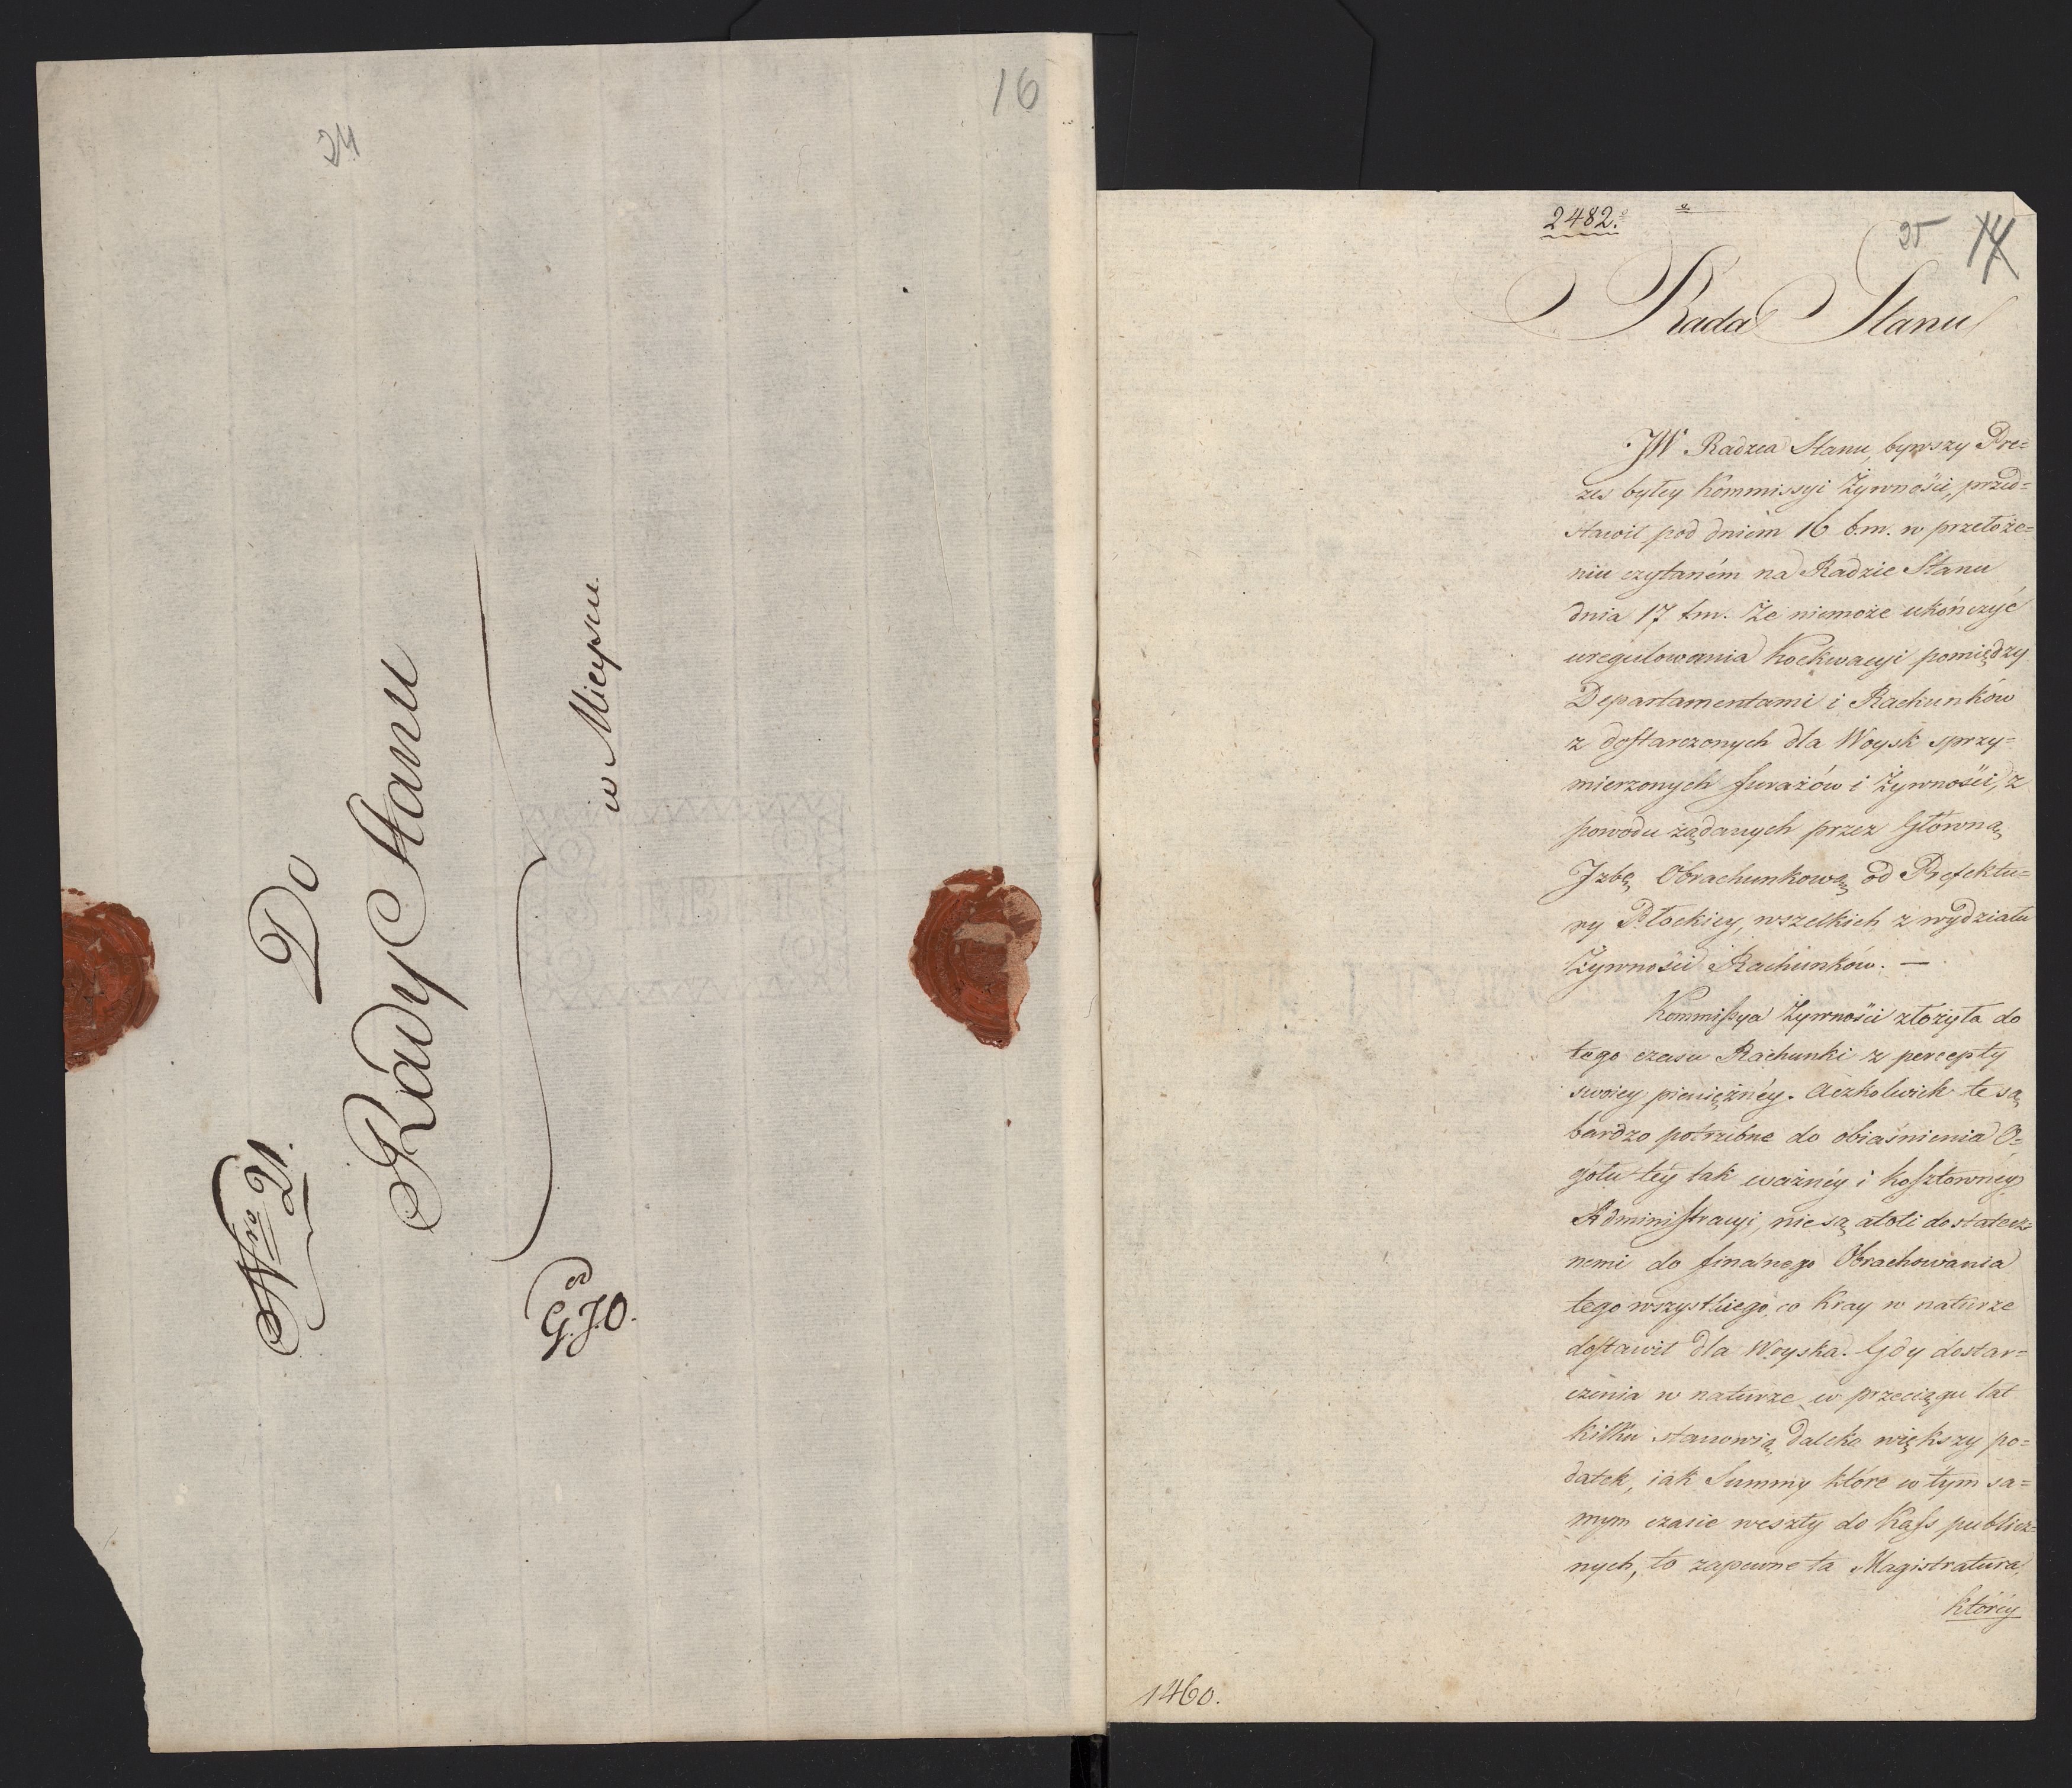 16
24
Nro 21.
Do
Rady Stanu
w Mieyscu
od
G.J.O.
2482.
25
17
Rada Stanu
JW Radzca Stanu, bywszy Pre=
zes byłey Kommissyi Żywności, przed=
stawił pod dniem 16 b.m. w przełoże=
niu czytaném na Radzie Stanu
dnia 17 t.m. Że niemoże ukończyć
uregulowania Koekwacyi pomiędzy
Departamentami i Rachunków
z dostarczonych dla Woysk sprzy=
mierzonych furażów i Żywności, z
powodu żądanych przez Główną
Jzbę Obrachunkową od Prefektu=
ry Płockiey, wszelkich z wydziału
Żywności Rachunków. —
Kommissya Żywności złożyła do
tego czasu Rachunki z percepty
swoiey pieniężnéy. Aczkolwiek te są
bardzo potrzebne do obiaśnienia O=
gółu téy tak ważnéy i kosztownéy
Administracyi, nie są atoli dostatecz=
nemi do finalnego Obrachowania
tego wszystkiego, co Kray w naturze
dostawił dla Woyska. Gdy dostar=
czenia w naturze w przeciągu lat
kilku stanowią daleko większy po=
datek, iak Summy które w tym sa=
mym czasie weszły do Kass publicz=
nych, to zapewne ta Magistratura,
któréy
1460.